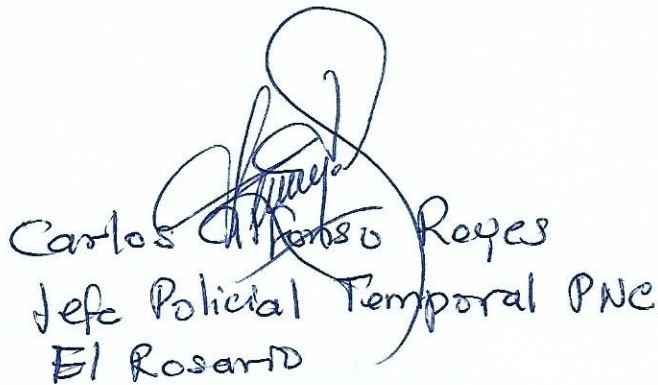 Carlos Alfonso Reyes
Jefe Policial Temporal PNC
El Rosario